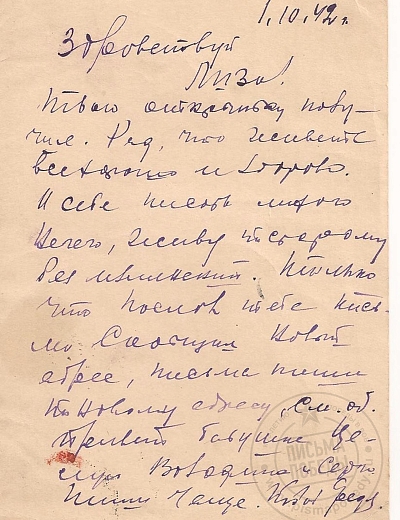 1.10.42 г.
Здравствуй
Лиза!
Твою открытку полу-
чил. Рад, что живете
все хорошо и здорово.
О себе писать много
нечего, живу по старому
без изменений. Только
что послал тебе пись-
мо. Сообщил новый
адрес, письма пиши
по новому адресу, см. об.
Привет бабушке. Це-
лую
Пиши чаще.
ПИСЬМА